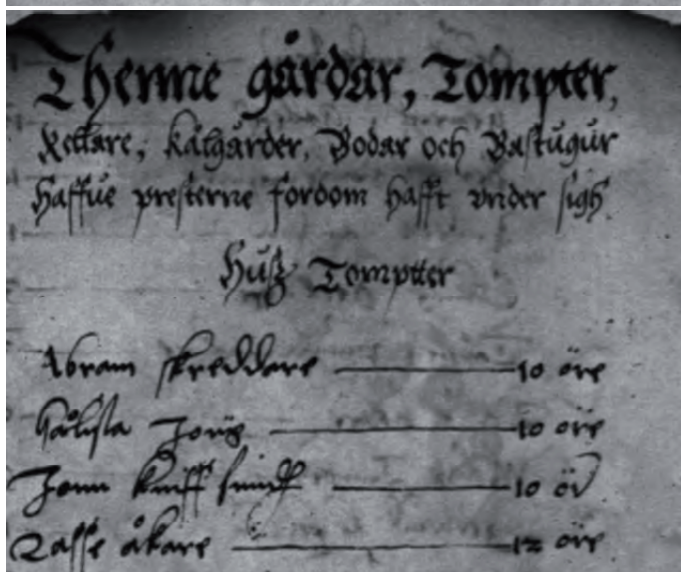 Thenne gårdar, Tompter,
Kellare, Kålgårder, Bodar och Bastugur
Haffue presterne fordom hafft vnder sigh
Husz Tomptter
Abram skreddare 10 öre
Jöns 10 öre
Jonn kniff smidh 10 ör
Lasse åkare 12 öre